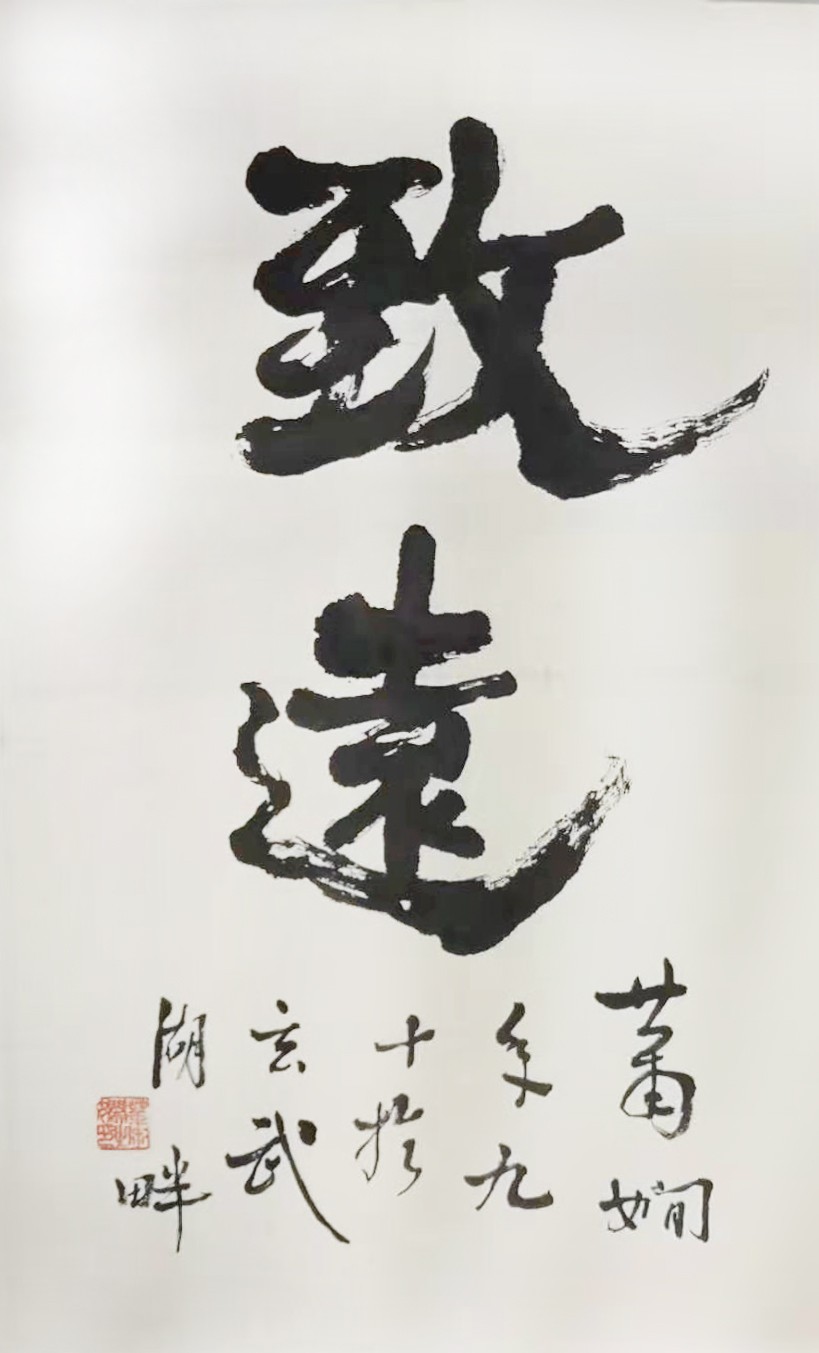 致
遠
蕭嫻
年九
十於
玄武
湖畔